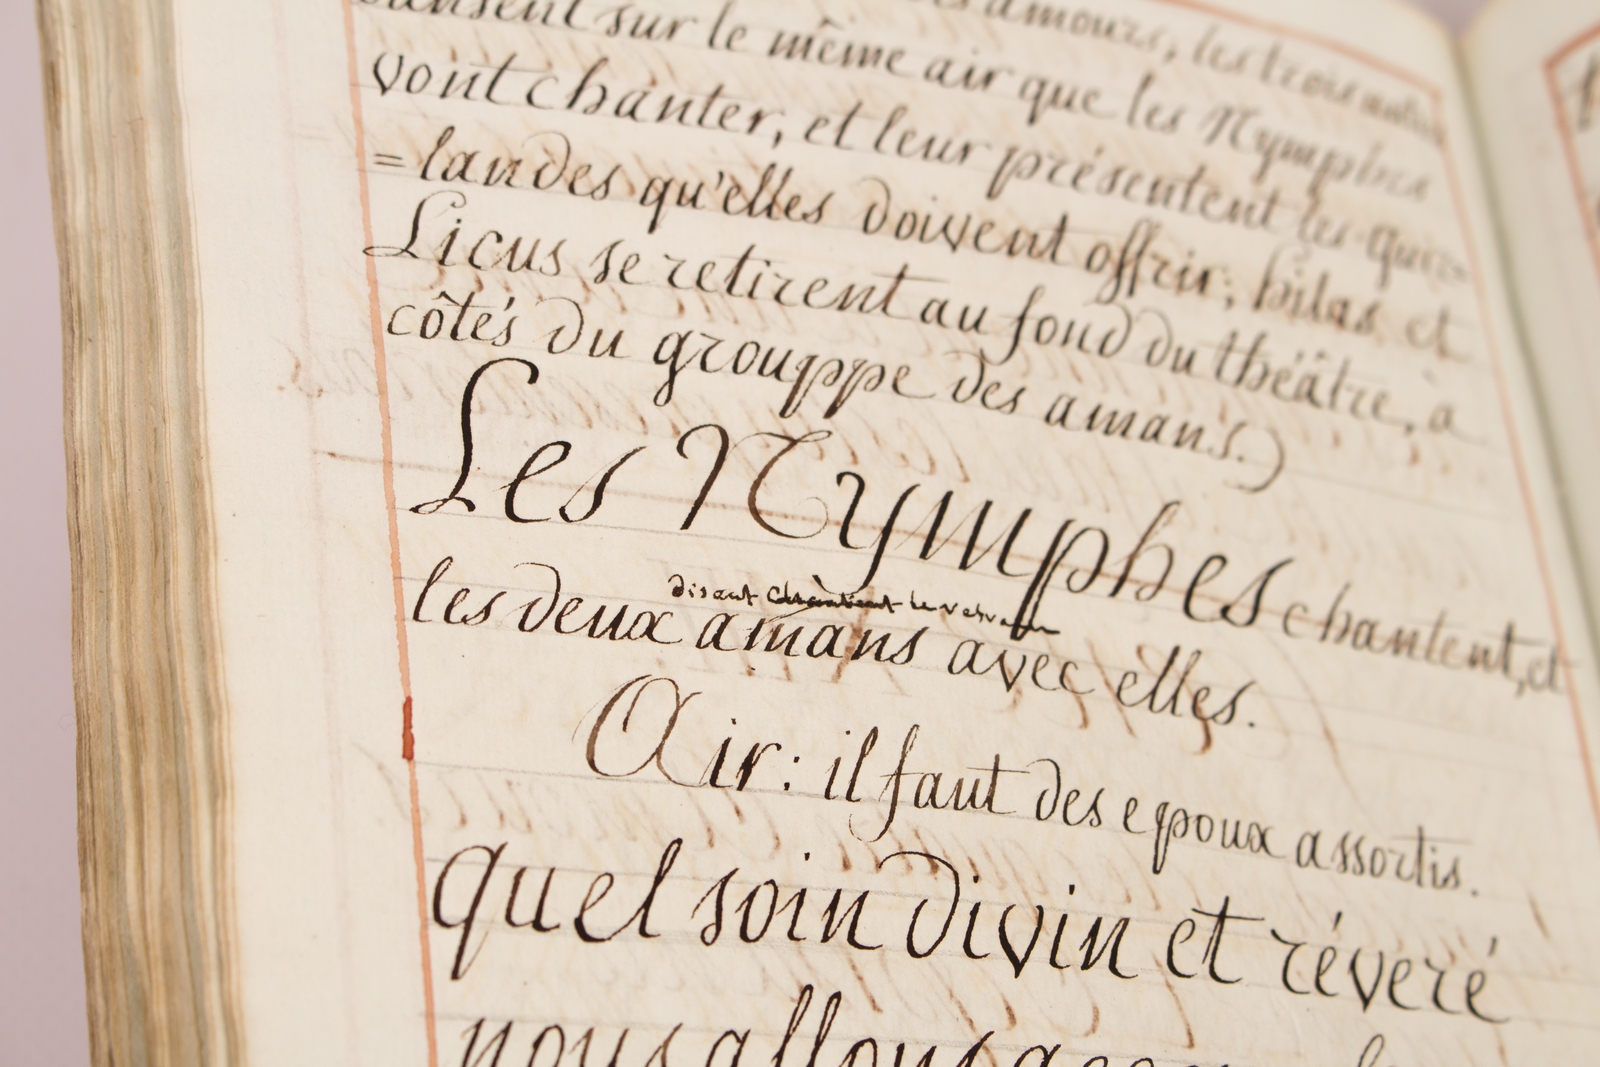 amours, les trois autres
dansent sur le même air que les Nymphes
vont chanter, et leur présentent les guir=
=landes qu'elles doivent offrir; hilas et
Licus se retirent au fond du théâtre, a
côtés du grouppe des amans.)
Les Nymphes chantent, et
disant chantent le
les deux amans avec elles.
Air: il faut des epoux assortis.
quel soin divin et réveré
nous allons